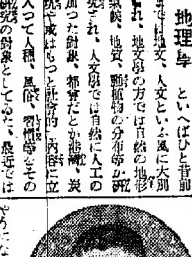 地理學 といへばひと昔前
では地文、人文といふ風に大別
され、地文學の方では自然の地形
氣候、地質、動植物の分布等が研
究され、人文學では自然に人工の
加つた對象、都會だとか港灣、炭
或はもつと社會的 内容に立
入つて人種、風俗、習慣等をその
研究の對象としてゐた。最近では